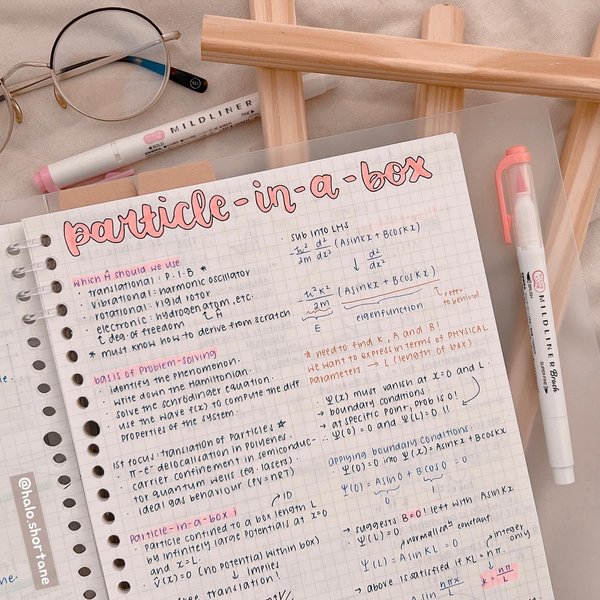 particle-in-a-box
which Ĥ should we use
· translational : P·I·B *
· vibrational : harmonic oscillator
· rotational : rigid rotor
· electronic : hydrogen atom, etc.
↳ deg. of freedom ↳ Ĥ
* must know how to derive from scratch
basis of problem-solving
· identify the phenomenon.
· write down the Hamiltonian.
· solve the schrödinger equation.
· use the wave f(x) to compute the diff
properties of the system.
1st focus : translation of particles *
· π-e⁻ delocalisation in polyenes.
· carrier confinement in semiconduc-
tor quantum wells (eg. lasers)
· ideal gas behaviour (PV = nRT)
particle-in-a-box!
→ 1D
· particle confined to a box length L
by infinitely large potentials at x=0
and x=L.
· V̂(x) = 0 (no potential within box)
↓ implies
free translation!
· sub into LHS
ħ²/2m d²/dx² (A sin kx + B cos kx)
↓ d²/dx²
ħ²k²/2m (A sin kx + B cos kx)
E eigenfunction
refer to behind!
* need to find k, A and B!
we want to express in terms of PHYSICAL
parameters → L (length of box)
· Ψ(x) must vanish at x=0 and L.
→ boundary conditions.
→ at specific point, prob is 0!
∴ Ψ(0) = 0 and Ψ(L) = 0!!
applying boundary conditions.
· Ψ(0) = 0 into Ψ(x) = A sin kx + B cos kx
Ψ(0) = A sin 0 + B cos 0 = 0
0 1
→ suggests B=0! left with A sin kx
normalisation constant
· Ψ(L) = A sin kL = 0
integer only
→ above is satisfied if kL = nπ.
k = nπ/L
A sin nπx/L
MILDLINER
MILDLINER Brush
SUPER FINE
@halo.shortane